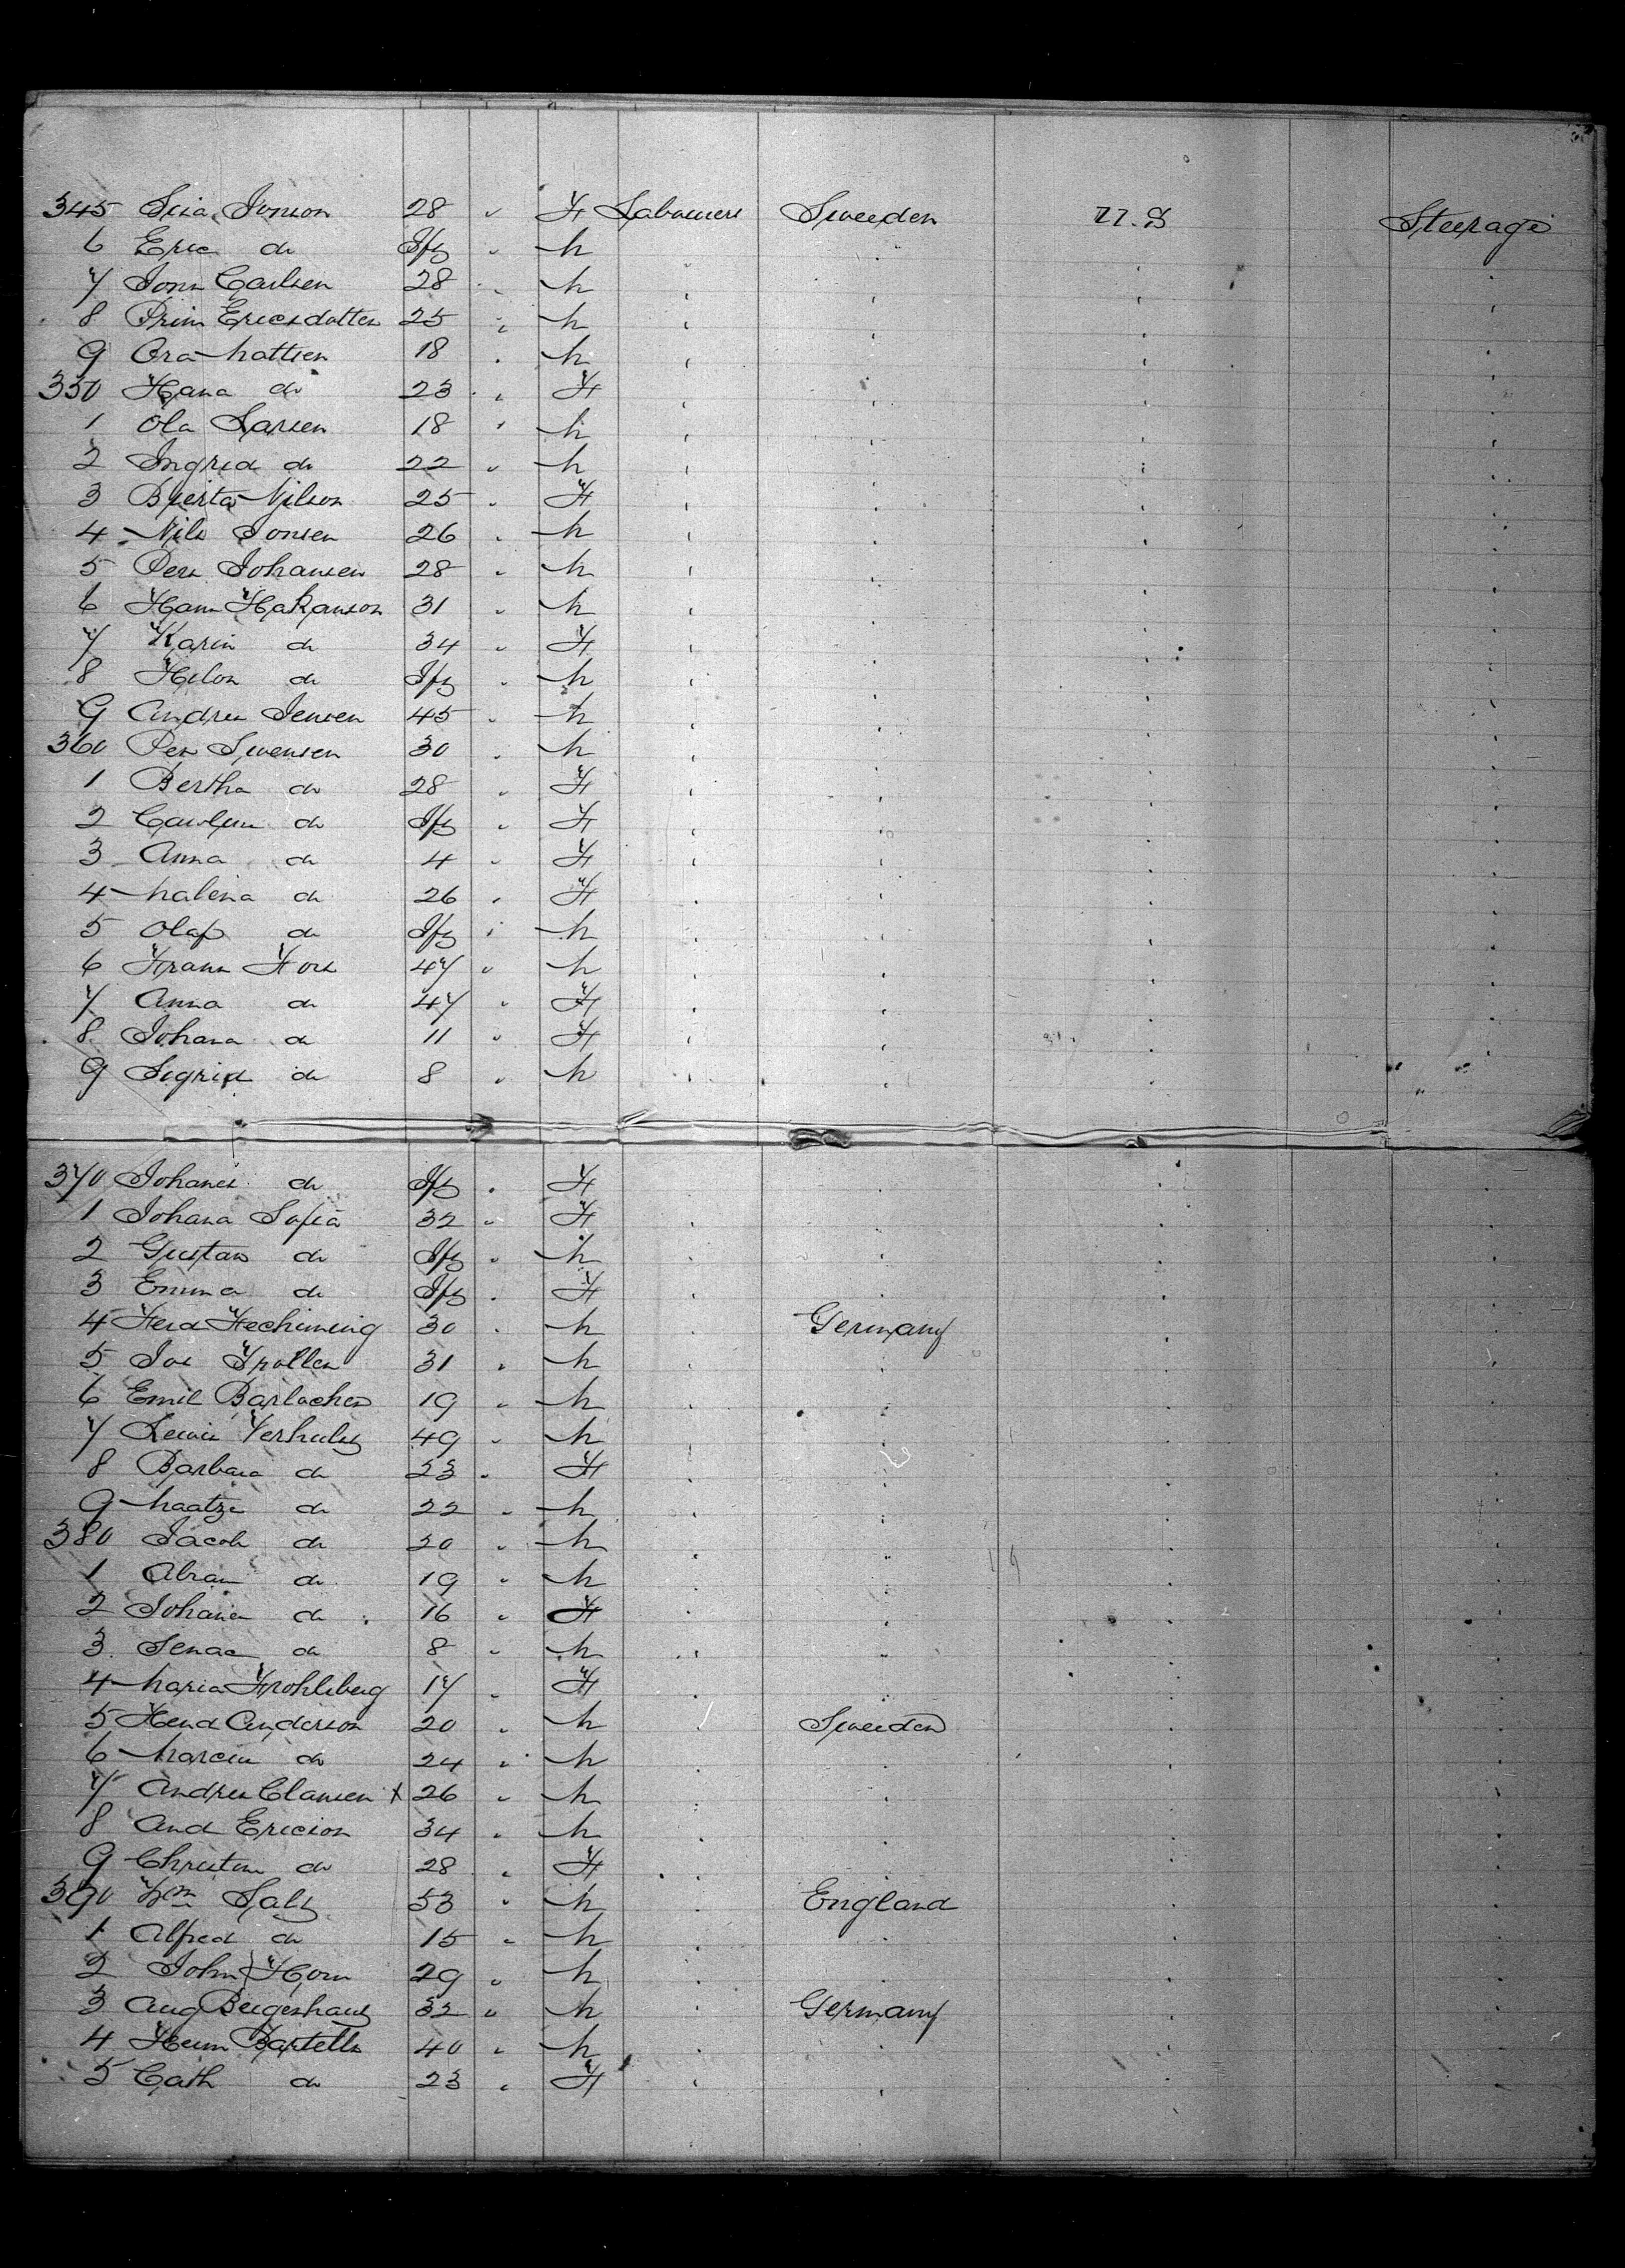 345 Lisa Jonson 28 " F Labourers Sweeden U.S Steerage
6 Eric do Ify " M
7 Jons Carlsen 28 " M
8 Prim Ericsdotter 25 " M
9 Ora Mattsen 18 " M
350 Hana do 23 " F
1 Ola Larsen 18 " M
2 Ingrid do 22 " M
3 Bjerta Nilson 25 " F
4 Nils Jonsen 26 " M
5 Pers Johansen 28 " M
6 Hans Hakanson 31 " M
7 Karin do 34 " F
8 Helon do Ify " M
9 Andres Jensen 45 " M
360 Per Swensen 30 " M
1 Bertha do 28 " F
2 do Ify " F
3 Anna do 4 " F
4 Malena do 26 " F
5 Olaf do Ify " M
6 Frans Fors 47 " M
7 Anna do 47 " F
8 Johana do 11 " F
9 Segrid do 8 " M
370 Johanes do Ify " F
1 Johana Sofia 32 " F
2 Gustav do Ify " M
3 Emma do Ify " F
4 Ferd 30 " M Germany
5 Jos 31 " M
6 Emil Barlacher 19 " M
7 Lewis Verhulz 49 " M
8 Barbara do 23 " F
9 Maatze do 22 " M
380 Jacob do 20 " M
1 Abram do 19 " M
2 Johana do 16 " F
3 do 8 " M
4 Maria Frohleberg 17 " F
5 Hend Anderson 20 " M Sweeden
6 do 24 " M
7 Andres Clausen x 26 " M
8 And Ericson 34 " M
9 Christin do 28 " F
390 Wm Saly 53 " M England
1 Alfred do 15 " M
2 John Horn 29 " M
3 Aug 32 " M Germany
4 Bartells 40 " M
5 Cath do 23 " F